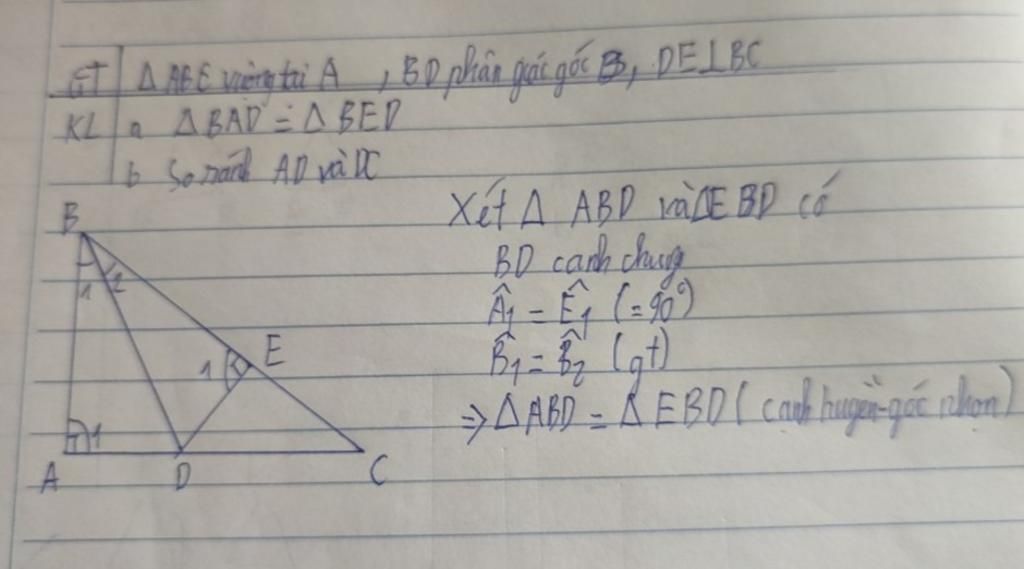 GT ΔABE vuông tại A, BD phân giác góc B, DE⊥BC
KL a ΔBAD = ΔBED
b So sánh AD và DC
Xét Δ ABD và ΔEBD có
BD cạnh chung
Â1 = Ê1 (= 90°)
B̂1 = B̂2 (gt)
⇒ ΔABD = ΔEBD (cạnh huyền-góc nhọn)
B
1 2
1 E
1
A D C